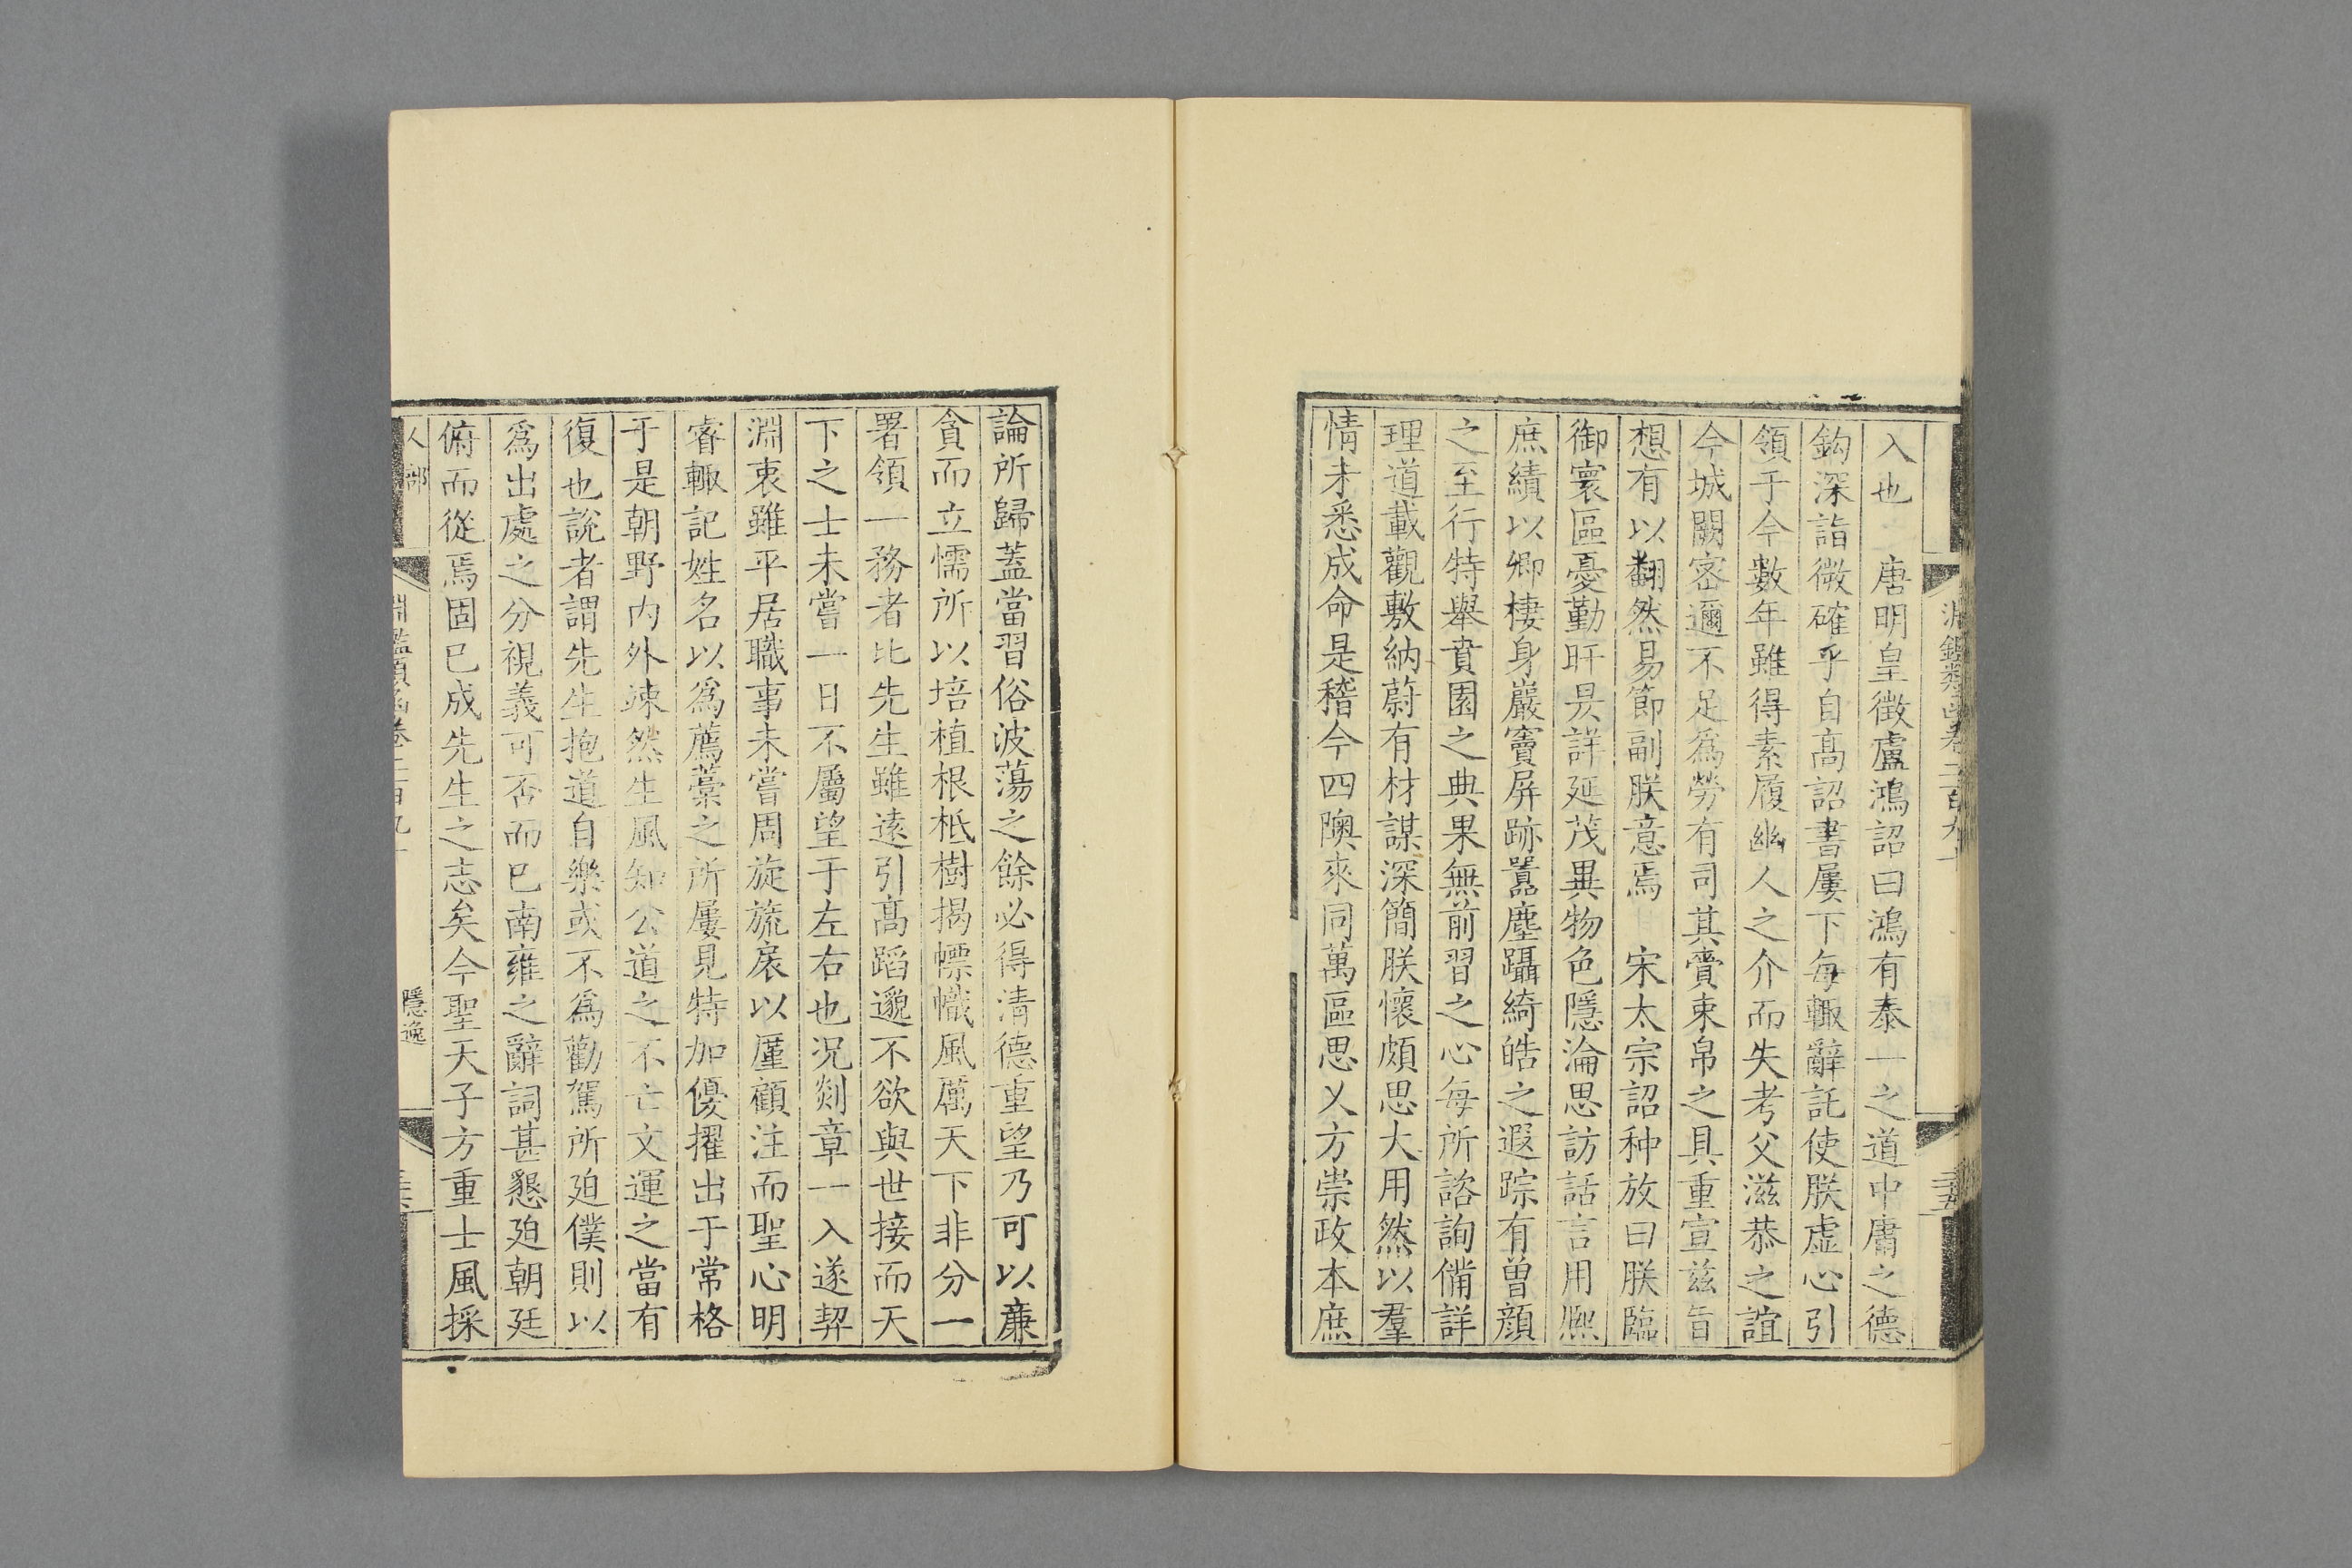 淵鑑類函卷二百九十
入也　唐明皇徵盧鴻詔曰鴻有泰一之道中庸之德
鈎深詣微確乎自高詔書屢下每輒辭託使朕虛心引
領于今數年雖得素履幽人之介而失考父滋恭之誼
今城闕密邇不足爲勞有司其賫束帛之具重宣兹旨
想有以翻然易節副朕意焉　宋太宗詔种放曰朕臨
御寰區憂勤旰昃詳延茂異物色隱淪思訪話言用熈
庶績以卿棲身巖竇屏跡囂塵躡綺皓之遐踪有曽顔
之至行特舉賁園之典果無前習之心每所諮詢備詳
理道載觀敷納蔚有材謀深簡朕懷頗思大用然以羣
情未悉成命是稽今四隩來同萬區思乂方崇政本庶
論所歸蓋當習俗波蕩之餘必得清德重望乃可以廉
貪而立懦所以培植根柢樹揭幖幟風厲天下非分一
署領一務者比先生雖遠引高蹈邈不欲與世接而天
下之士未嘗一日不屬望于左右也况剡章一入遂契
淵衷雖平居職事未嘗周旋旒扆以厪顧注而聖心明
睿輒記姓名以爲薦藁之所屢見特加優擢出于常格
于是朝野内外竦然生風知公道之不亡文運之當有
復也說者謂先生抱道自樂或不爲勸駕所廹僕則以
爲出處之分視義可否而已南雍之辭詞甚懇廹朝廷
俯而從焉固已成先生之志矣今聖天子方重士風採
人部
淵鑑類函卷二百九十
隱逸